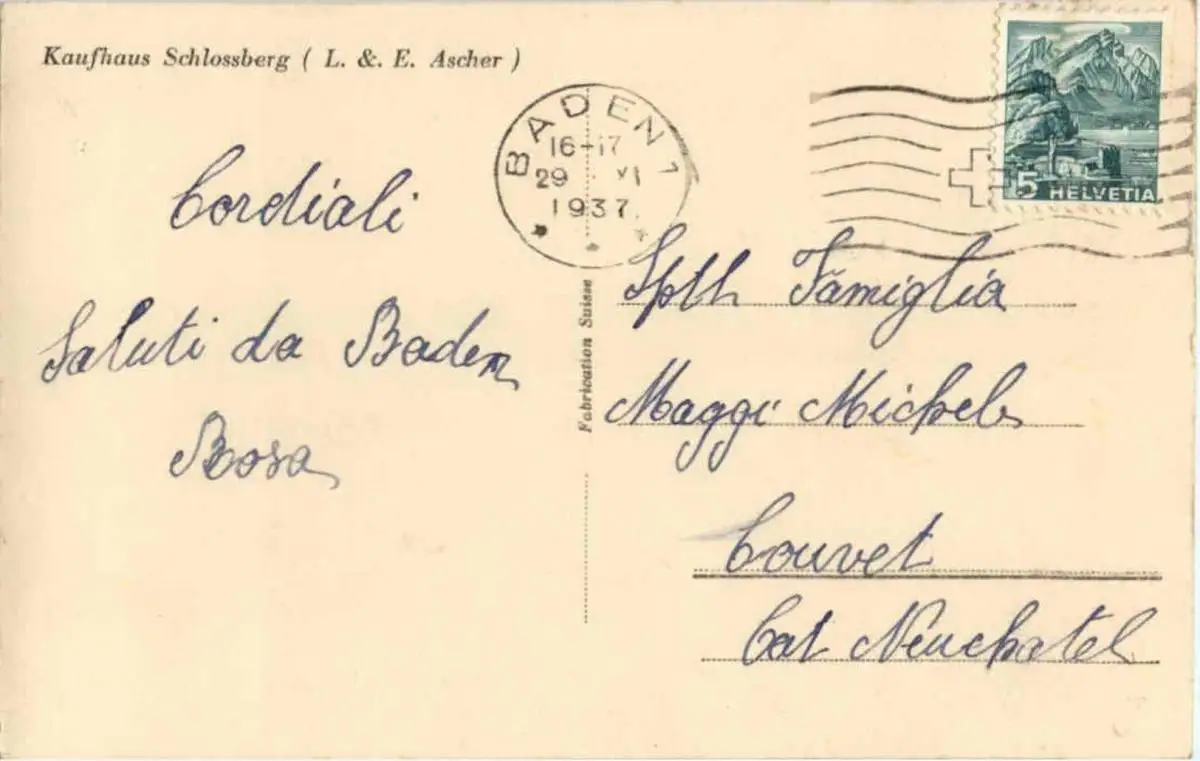 Kaufhaus Schlossberg ( L. &. E. Ascher )
BADEN 1
16-17
29 . XI
1937.
5 HELVETIA
Cordiali
Saluti da Baden
Rosa
Fabrication Suisse
Famiglia
Maggi Michele
Couvet
Cat Neuchatel